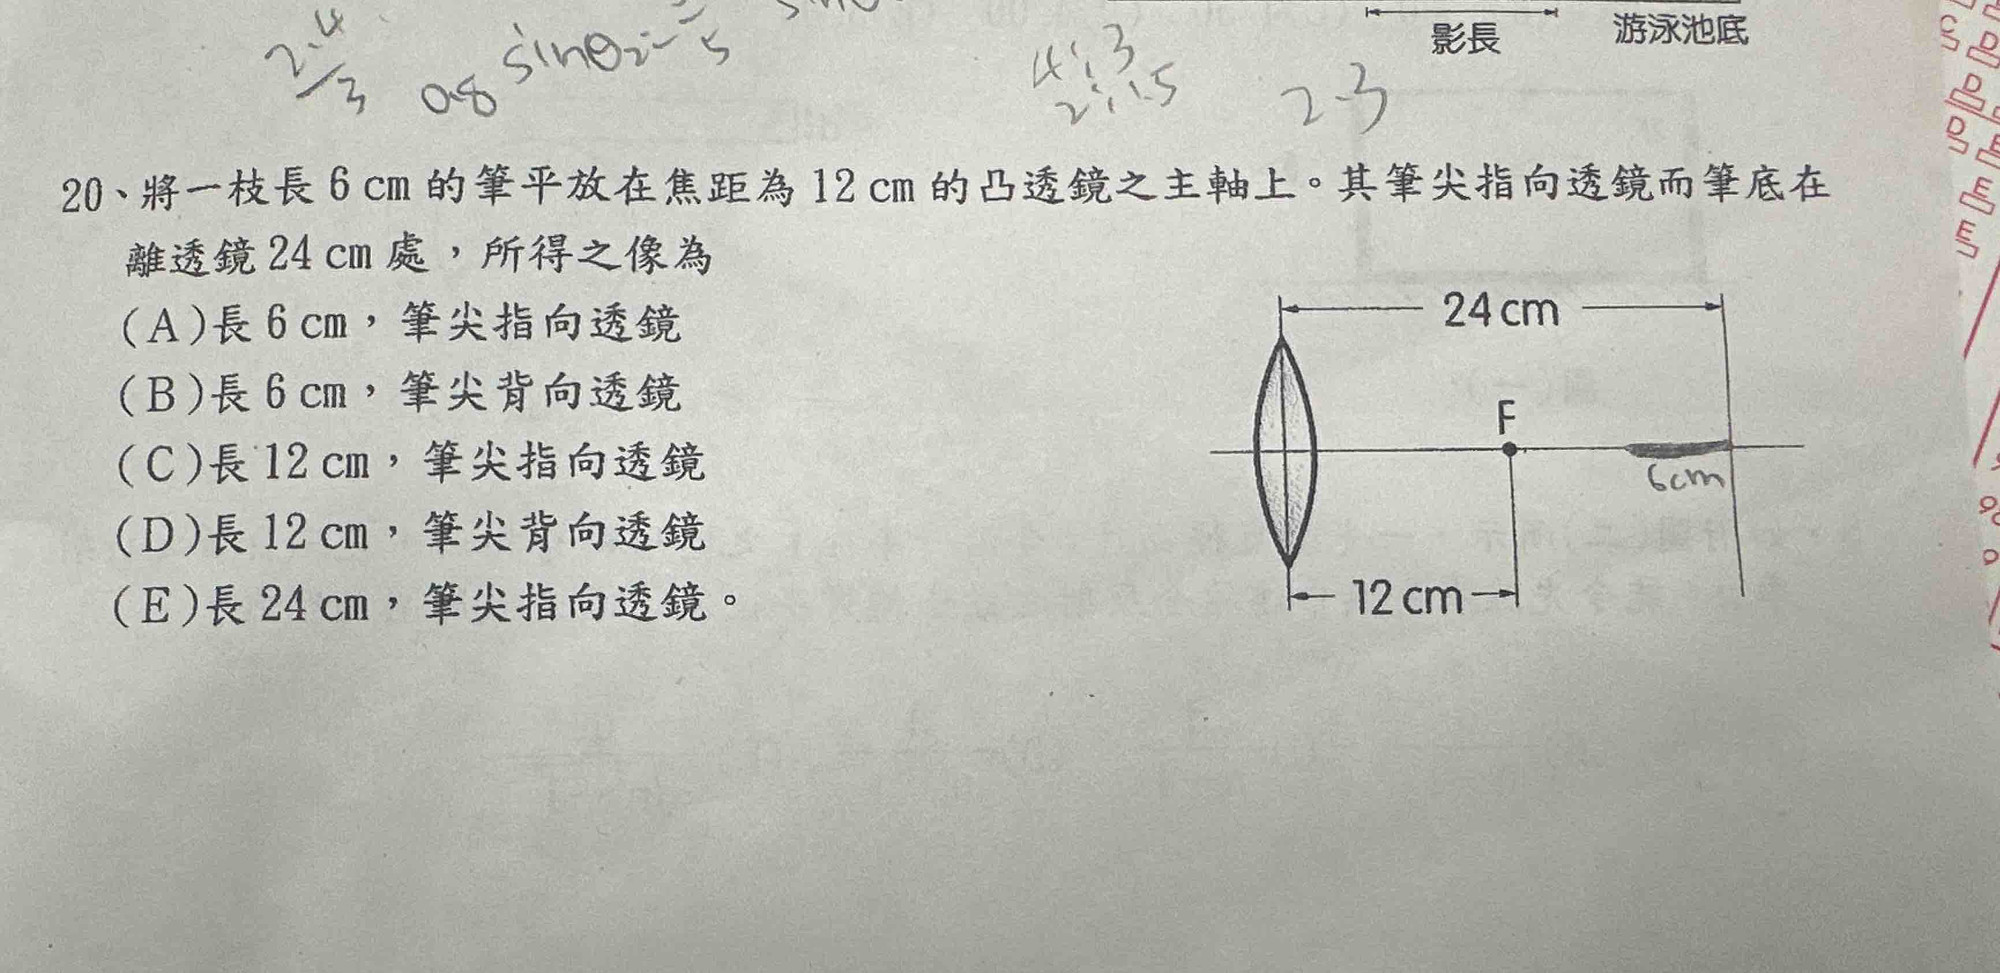 2.4
/3
0.8
sinθ2=
5
4:3
2:1.5
2.3
影長
游泳池底
20、將一枝長 6 cm 的筆平放在焦距為 12 cm 的凸透鏡之主軸上。其筆尖指向透鏡而筆底在
離透鏡 24 cm 處，所得之像為
(A)長 6 cm，筆尖指向透鏡
(B)長 6 cm，筆尖背向透鏡
(C)長 12 cm，筆尖指向透鏡
(D)長 12 cm，筆尖背向透鏡
(E)長 24 cm，筆尖指向透鏡。
24 cm
F
6cm
12 cm